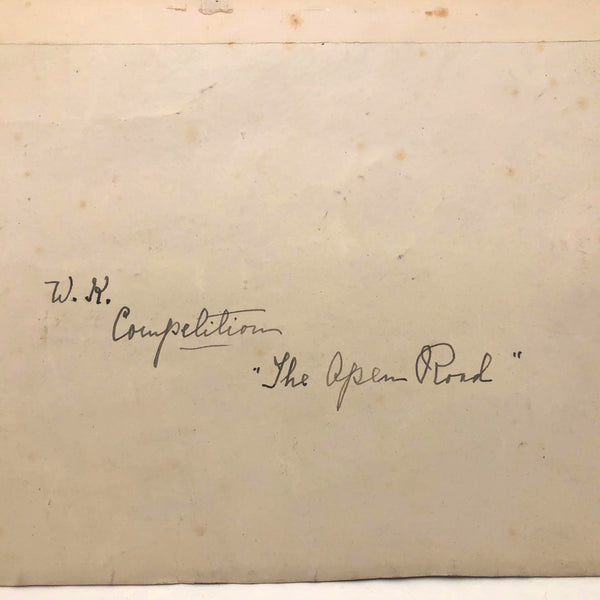 W. K.
Competition
"The Open Road"